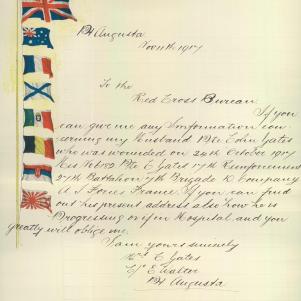 Pt Augusta
Nov 11th 1917
To the
Red Cross Bureau
If you
can give me any Information con
cerning my Husband Pte Edin Yates
who was wounded on 24th October 1917
His No 2139 Pte E Yates 17th Reinforcement
27th Battalion 7th Brigade D Company
A I Forces France. If you can find
out his present address also how he is
Progressing or if in Hospital and you
greatly will oblige me.
I am yours sincerely
Mrs E Yates
C/o E Walter
Pt Augusta